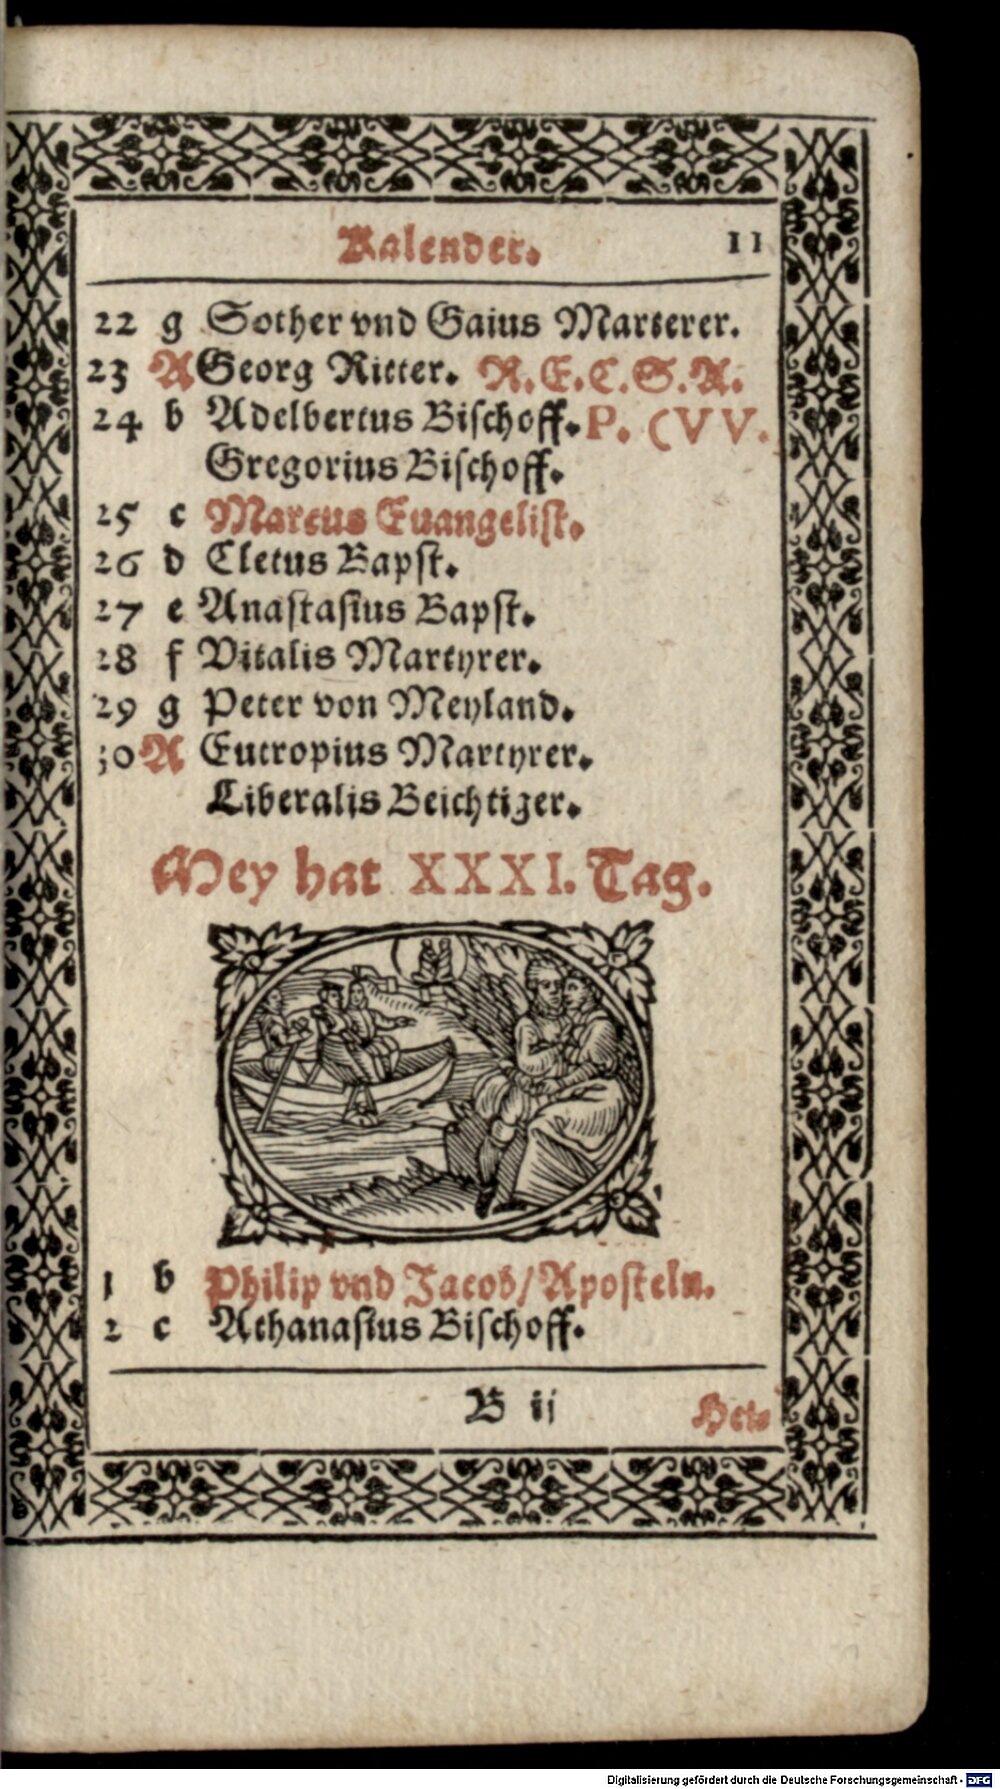 Kalender. 11
22 g Sother vnd Gaius Marterer.
23 A Georg Ritter. R. E. C. S. A.
24 b Adelbertus Bischoff. P. (VV.
Gregorius Bischoff.
25 c Marcus Euangelist.
26 d Cletus Bapst.
27 e Anastasius Bapst.
28 f Vitalis Martyrer.
29 g Peter von Meyland.
30 A Eutropius Martyrer.
Liberalis Beichtiger.
Mey hat XXXI. Tag.
1 b Philip vnd Jacob/Aposteln.
2 c Athanasius Bischoff.
B ij
Digitalisierung gefördert durch die Deutsche Forschungsgemeinschaft - DFG